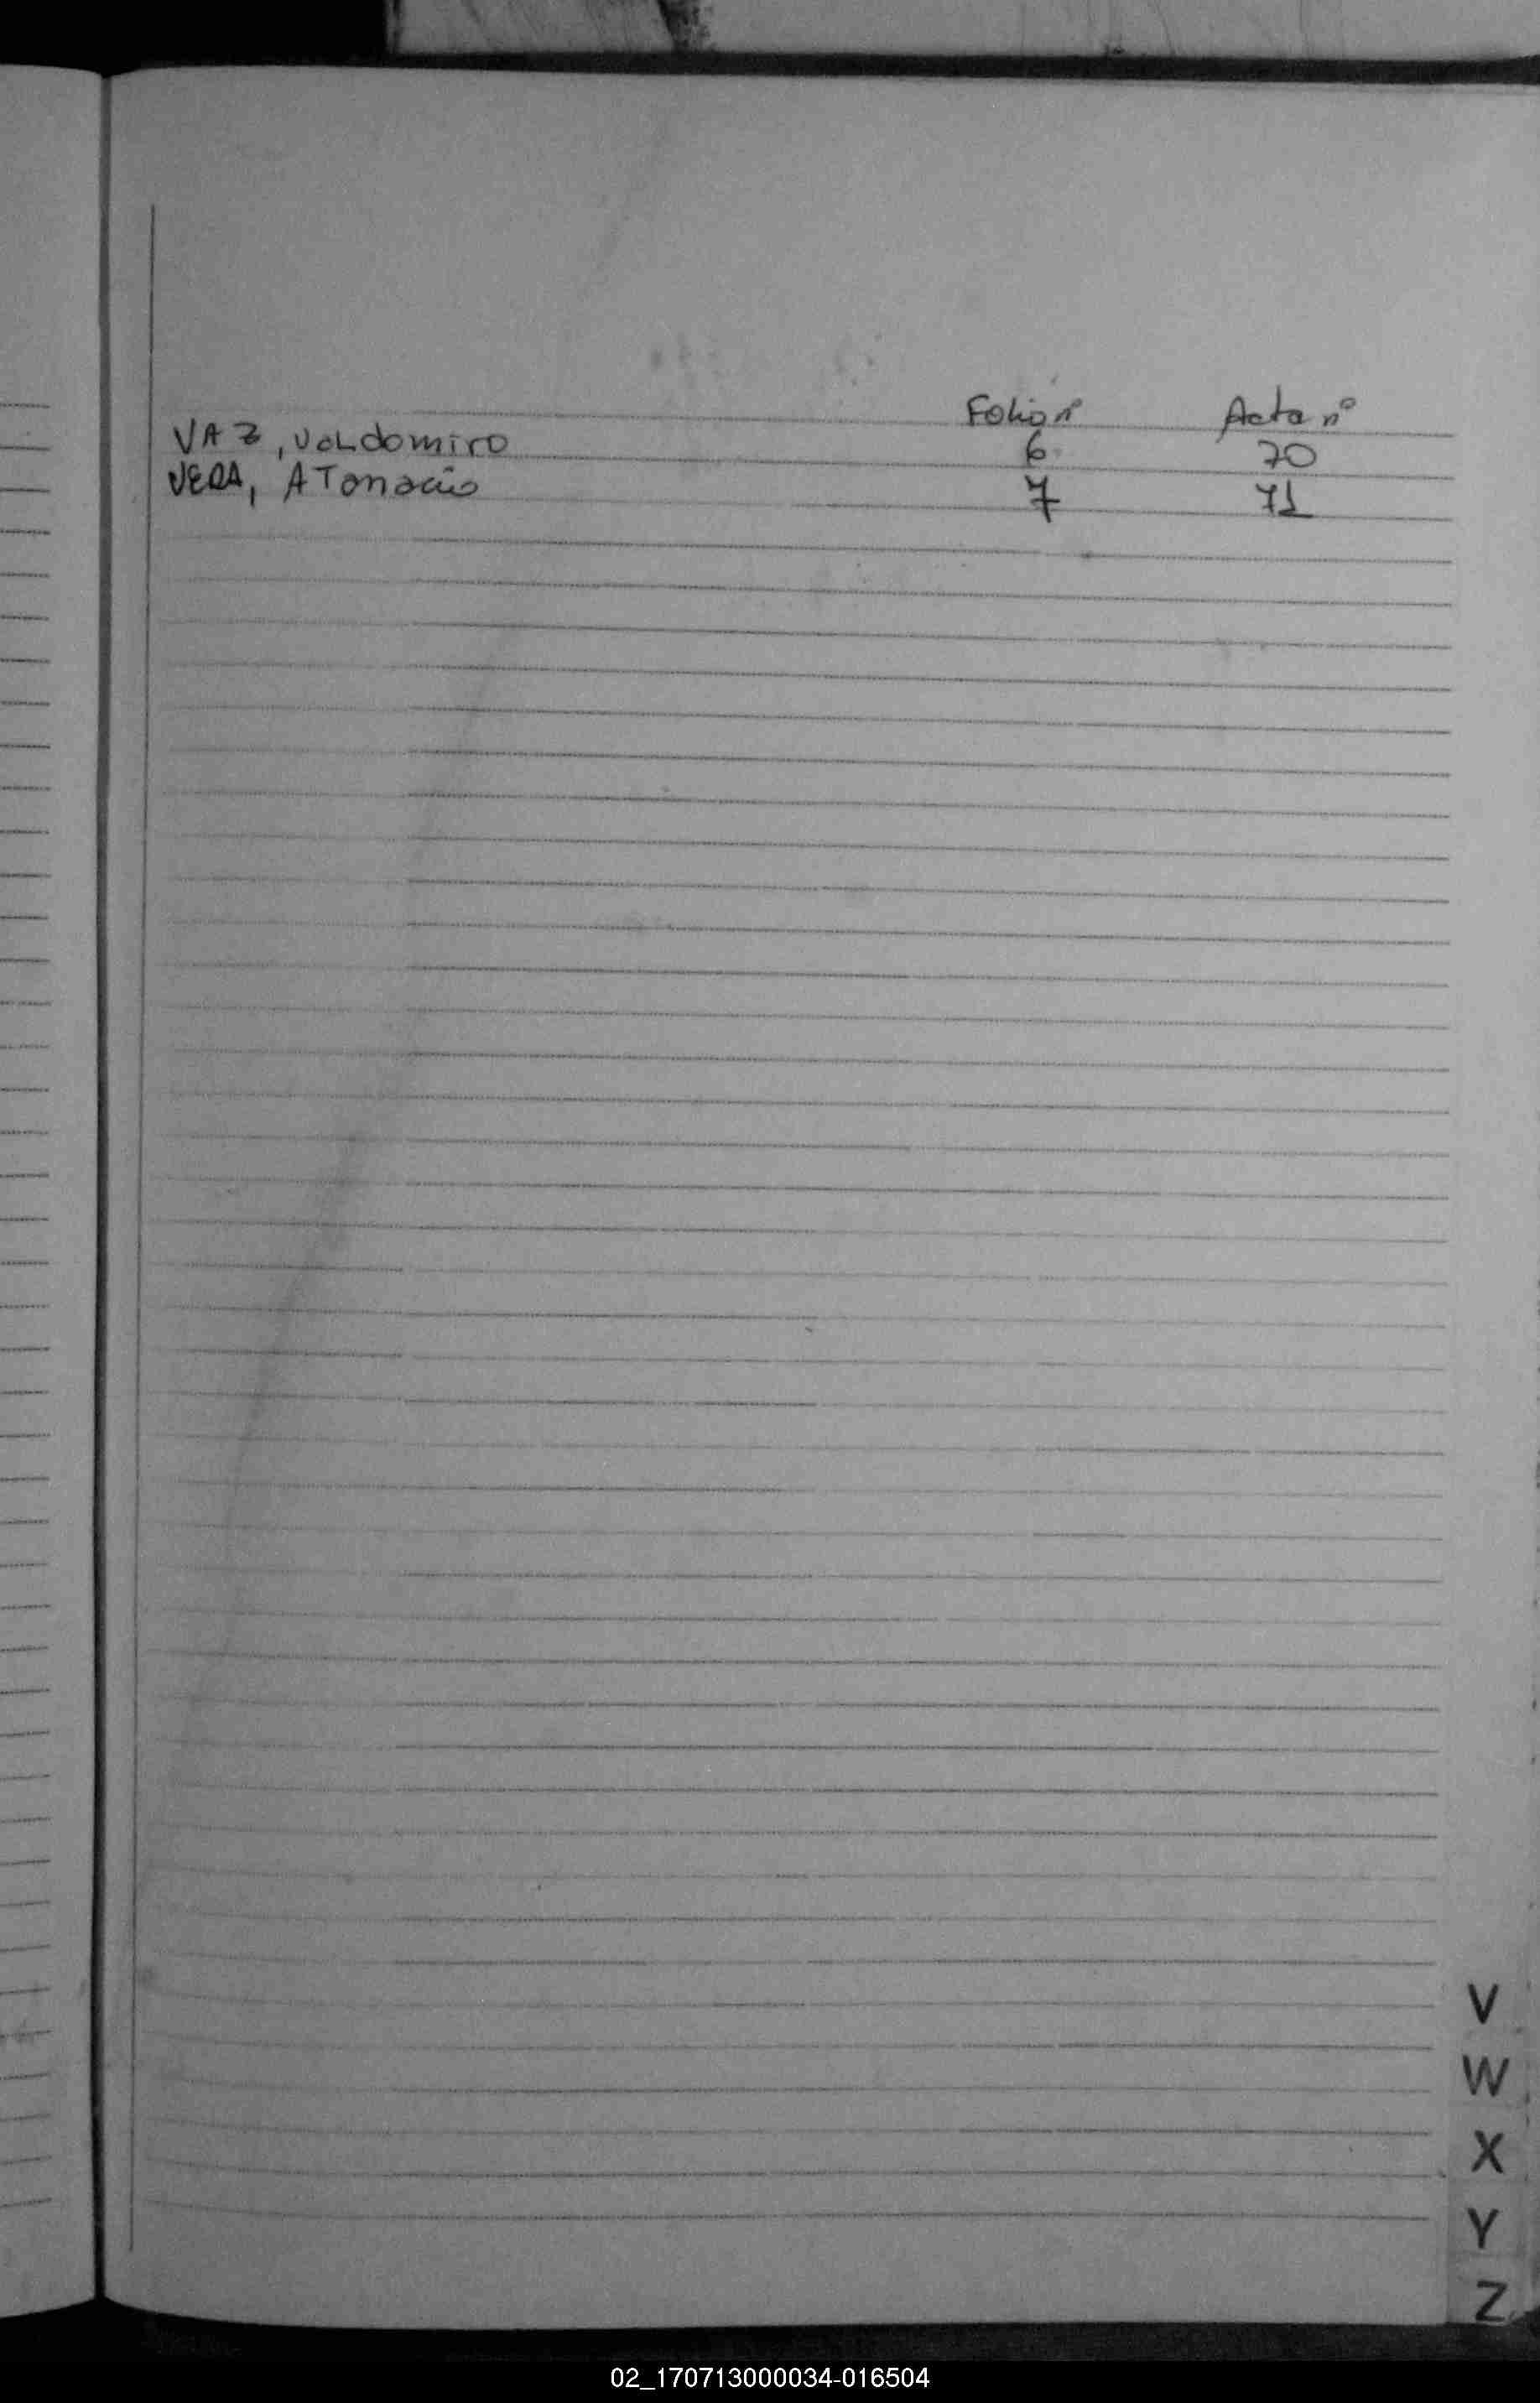 Folio nº Acta nº
VAZ, VALdomiro 6 70
VERA, ATanacio 7 71
V
W
X
Y
Z
02_170713000034-016504